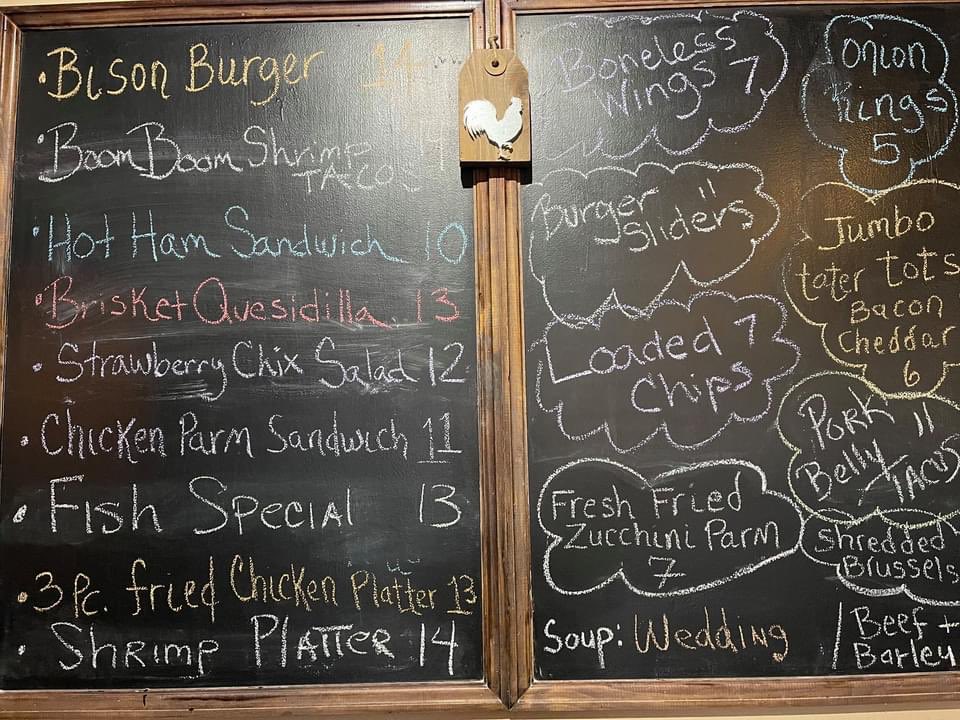 • Bison Burger 14
• Boom Boom Shrimp
Tacos
• Hot Ham Sandwich 10
• Brisket Quesidilla 13
• Strawberry Chix Salad 12
• Chicken Parm Sandwich 11
• Fish Special 13
• 3 Pc. fried Chicken Platter 13
• Shrimp Platter 14
Boneless
Wings 7
Onion
Rings
5
Burger 11
Sliders
Jumbo
tater tots
Bacon
Cheddar
6
Loaded 7
Chips
Pork 11
Belly
Tacos
Fresh Fried
Zucchini Parm
7
Shredded
Brussels
Soup: Wedding
Beef +
Barley